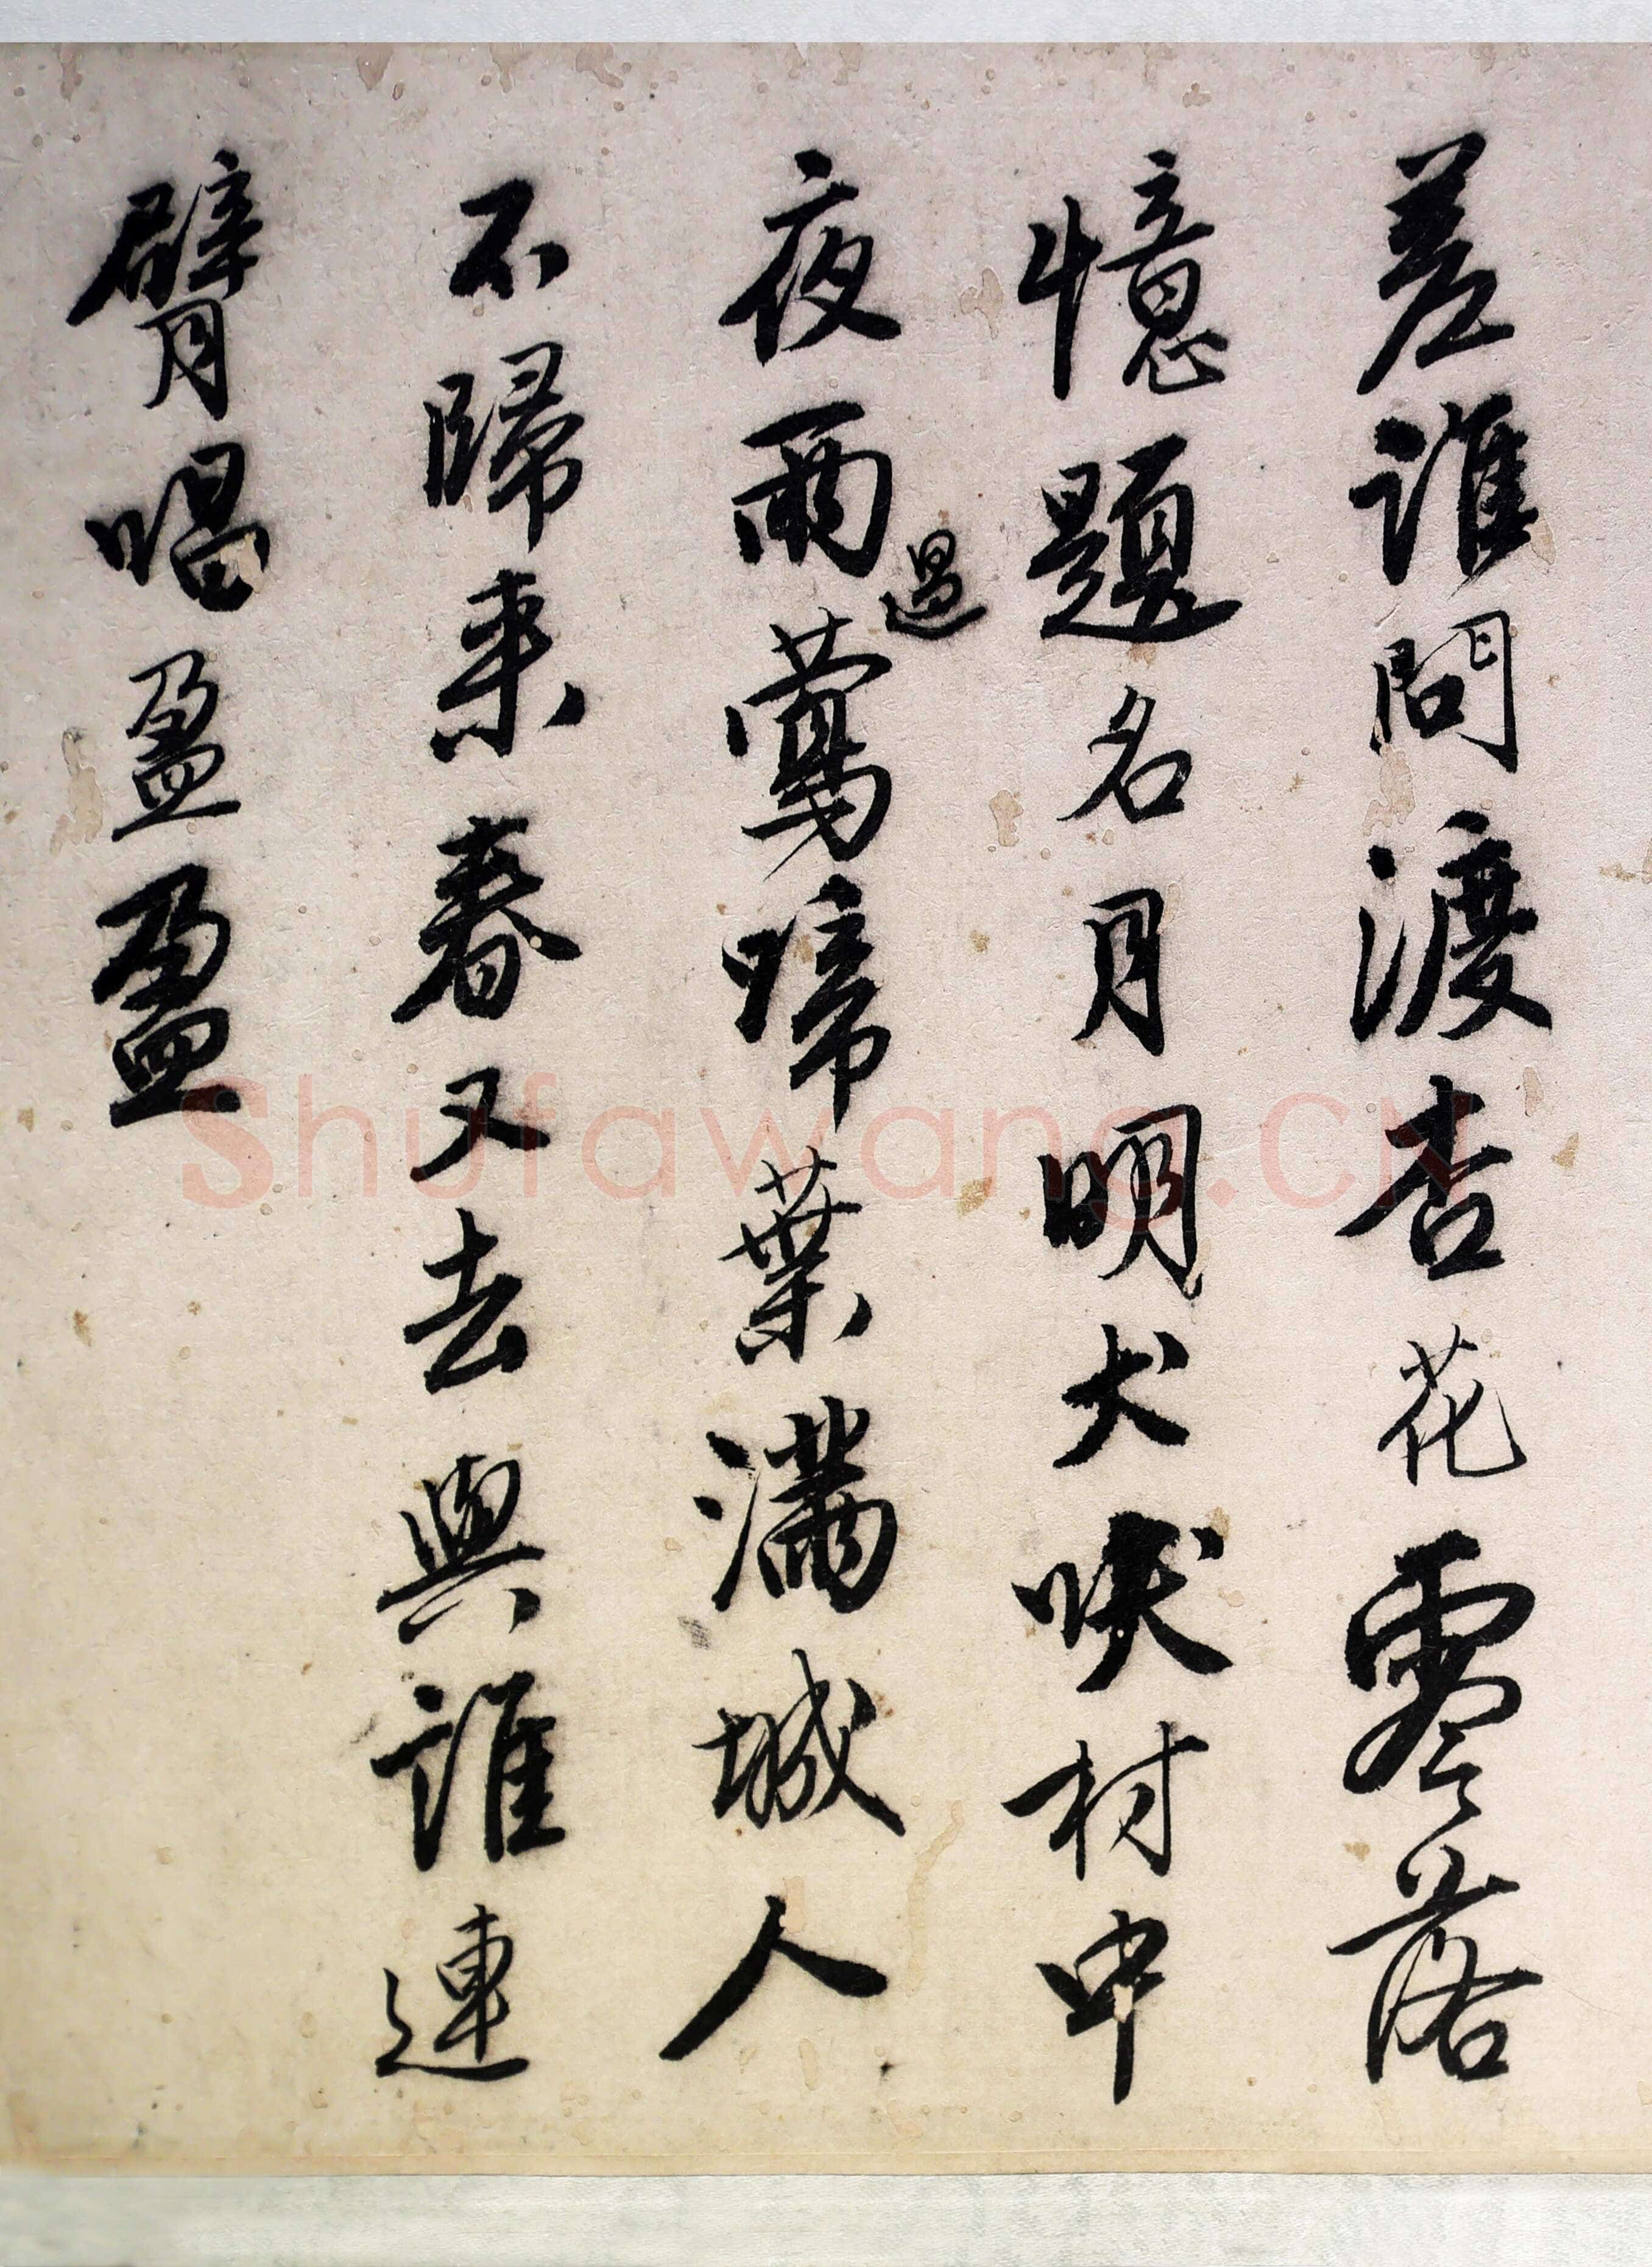 差誰問渡杏花零落
憶題名月明犬吠村中
夜雨過鶯啼葉滿城人
不歸來春又去與誰連
臂唱盈盈
Shufawang.CN